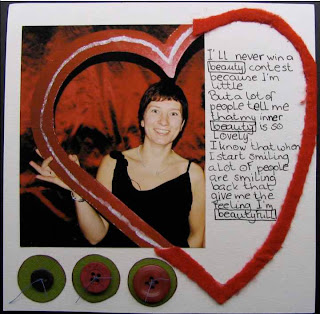 I'll never win a
beauty contest
because I'm
little
But a lot of
people tell me
that my inner
beauty is so
lovely
I know that when
I start smiling
a lot of people
are smiling
back that
give me the
feeling I'm
beautyfull!